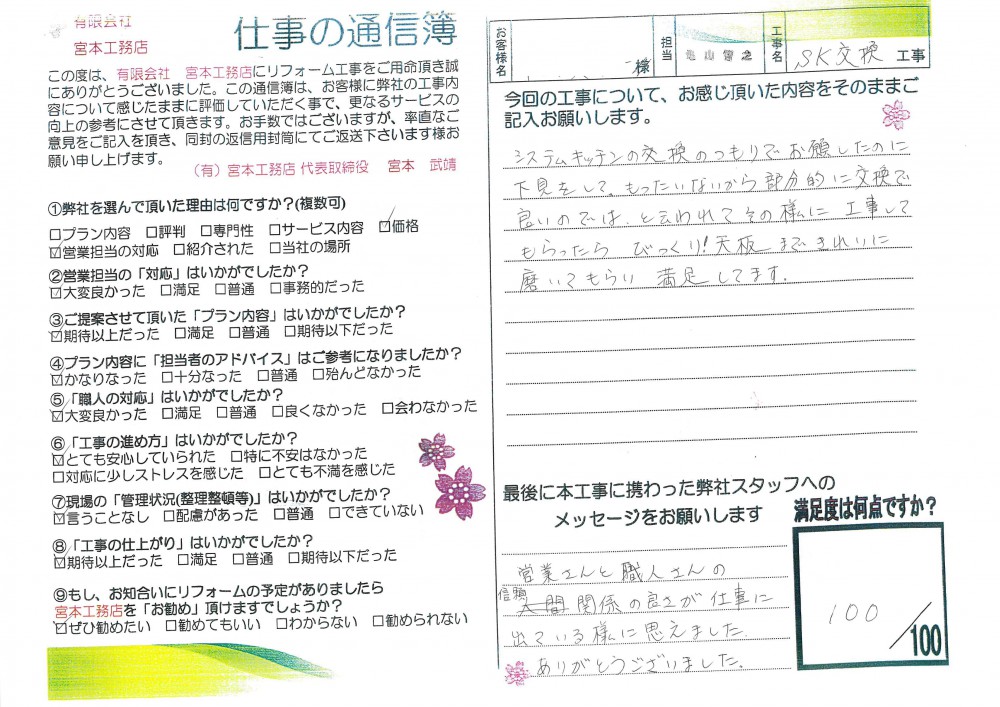 有限会社
宮本工務店
仕事の通信簿
この度は、有限会社 宮本工務店にリフォーム工事をご用命頂き誠
にありがとうございました。この通信簿は、お客様に弊社の工事内
容について感じたままに評価していただく事で、更なるサービスの
向上の参考にさせて頂きます。お手数ではございますが、率直なご
意見をご記入を頂き、同封の返信用封筒にてご返送下さいます様お
願い申し上げます。
（有）宮本工務店 代表取締役 宮本 武靖
①弊社を選んで頂いた理由は何ですか？(複数可)
□プラン内容 □評判 □専門性 □サービス内容 ☑価格
☑営業担当の対応 □紹介された □当社の場所
②営業担当の「対応」はいかがでしたか？
☑大変良かった □満足 □普通 □事務的だった
③ご提案させて頂いた「プラン内容」はいかがでしたか？
☑期待以上だった □満足 □普通 □期待以下だった
④プラン内容に「担当者のアドバイス」はご参考になりましたか？
☑かなりなった □十分なった □普通 □殆んどなかった
⑤「職人の対応」はいかがでしたか？
☑大変良かった □満足 □普通 □良くなかった □会わなかった
⑥「工事の進め方」はいかがでしたか？
☑とても安心していられた □特に不安はなかった
□対応に少しストレスを感じた □とても不満を感じた
⑦現場の「管理状況(整理整頓等)」はいかがでしたか？
☑言うことなし □配慮があった □普通 □できていない
⑧「工事の仕上がり」はいかがでしたか？
☑期待以上だった □満足 □普通 □期待以下だった
⑨もし、お知合いにリフォームの予定がありましたら
宮本工務店を「お勧め」頂けますでしょうか？
☑ぜひ勧めたい □勧めてもいい □わからない □勧められない
お客様名 様 担当 工事名 SK交換 工事
今回の工事について、お感じ頂いた内容をそのままご
記入お願いします。
システムキッチンの交換のつもりでお願したのに
下見をして。もったいないから部分的に交換で
良いのでは、と云われてその様に工事して
もらったら びっくり！天板まできれいに
磨いてもらい 満足してます.
最後に本工事に携わった弊社スタッフへの
メッセージをお願いします
営業さんと職人さんの
信頼関係の良さが仕事に
出ている様に思えました.
ありがとうございました.
満足度は何点ですか？
100
／100